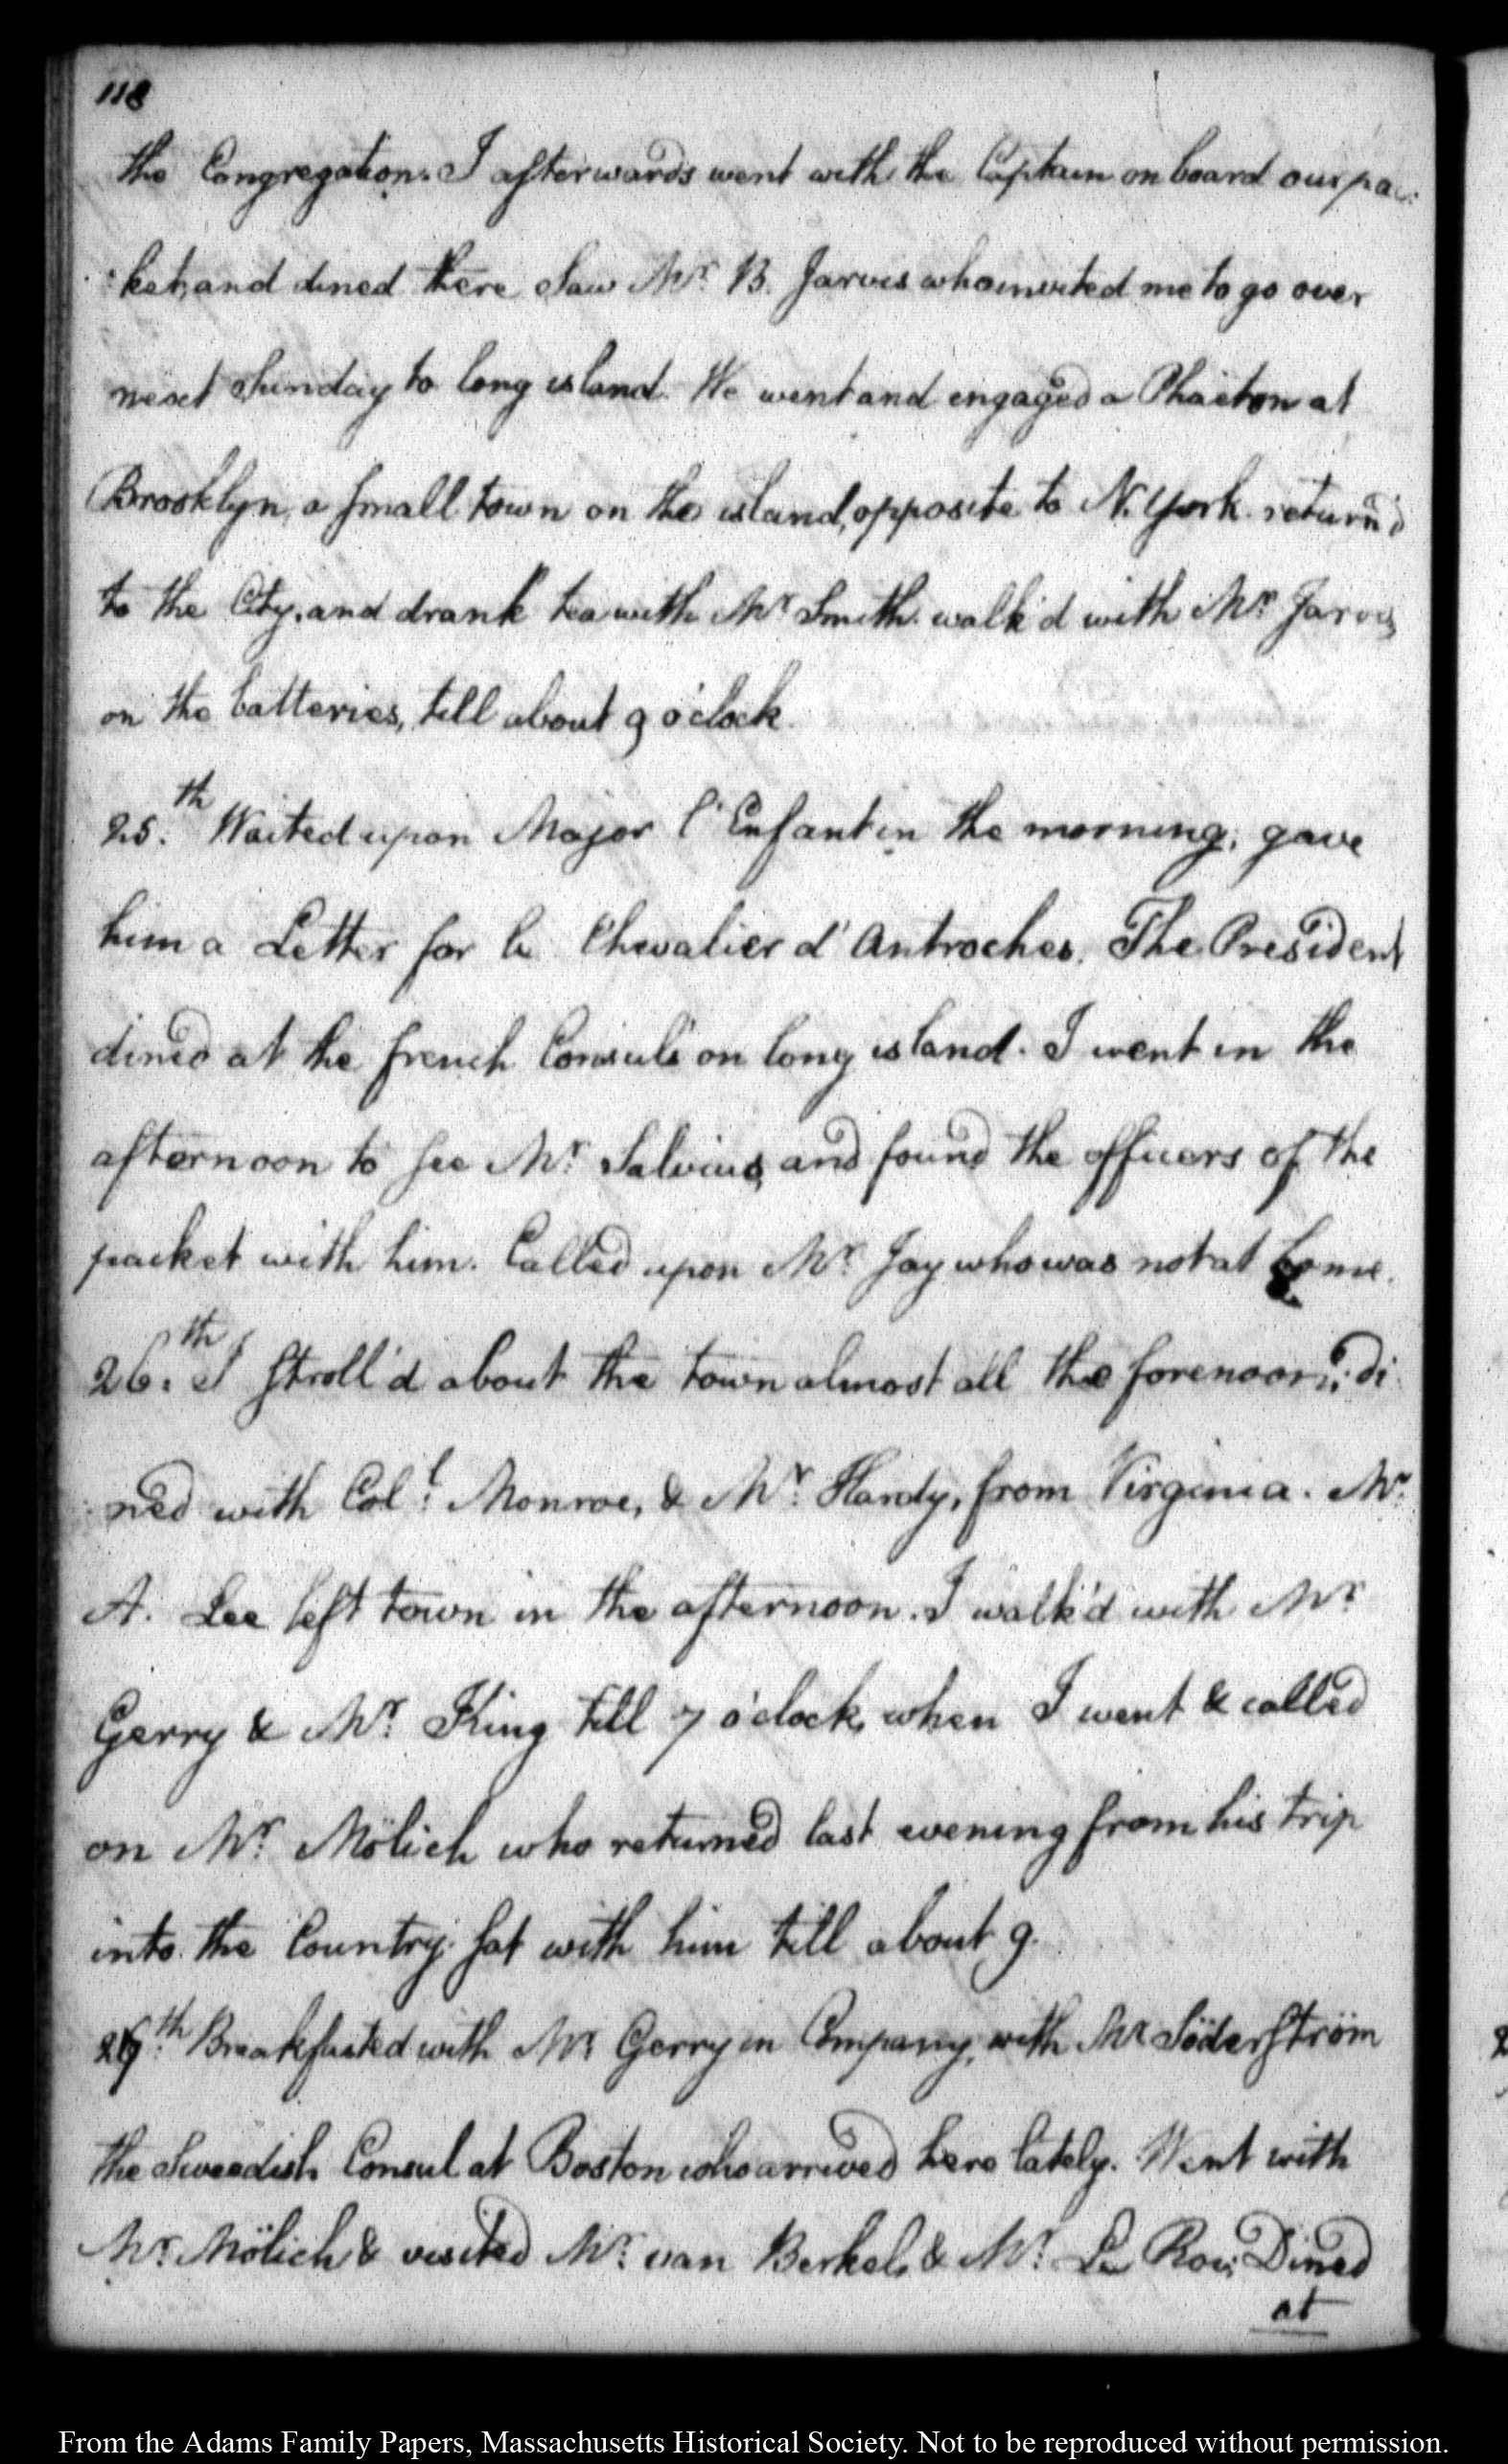 118
the Congregation. I afterwards went with the Captain on board our pac:
:ket, and dined there. Saw Mr. B. Jarvis who invited me to go over
next Sunday to long island. We went and engaged a Phaeton at
Brooklyn, a small town on the island, opposite to N. York. return'd
to the City, and drank tea with Mr. Smith. walk'd with Mr. Jarvis
on the batteries, till about 9 o'clock.
25.th Waited upon Major l'Enfant in the morning; gave
him a Letter for le Chevalier d'Antroches. The President
dined at the french Consul's on long island. I went in the
afternoon to see Mr. Salvius, and found the officers of the
packet with him. Called upon Mr. Jay who was not at home.
26.th I stroll'd about the town almost all the forenoon; di
:ned with Coll. Monroe, & Mr. Hardy, from Virginia. Mr.
A. Lee left town in the afternoon. I walk'd with Mr.
Gerry & Mr. King till 7 o'clock, when I went & called
on Mr. Mölich who returned last evening from his trip
into the Country. sat with him till about 9.
27.th Breakfasted with Mr. Gerry in Company, with Mr. Söderström
the Sweedish Consul at Boston who arrived here lately. Went with
Mr. Mölich & visited Mr. van Berkel, & Mr. Le Roi; Dined
at
From the Adams Family Papers, Massachusetts Historical Society. Not to be reproduced without permission.